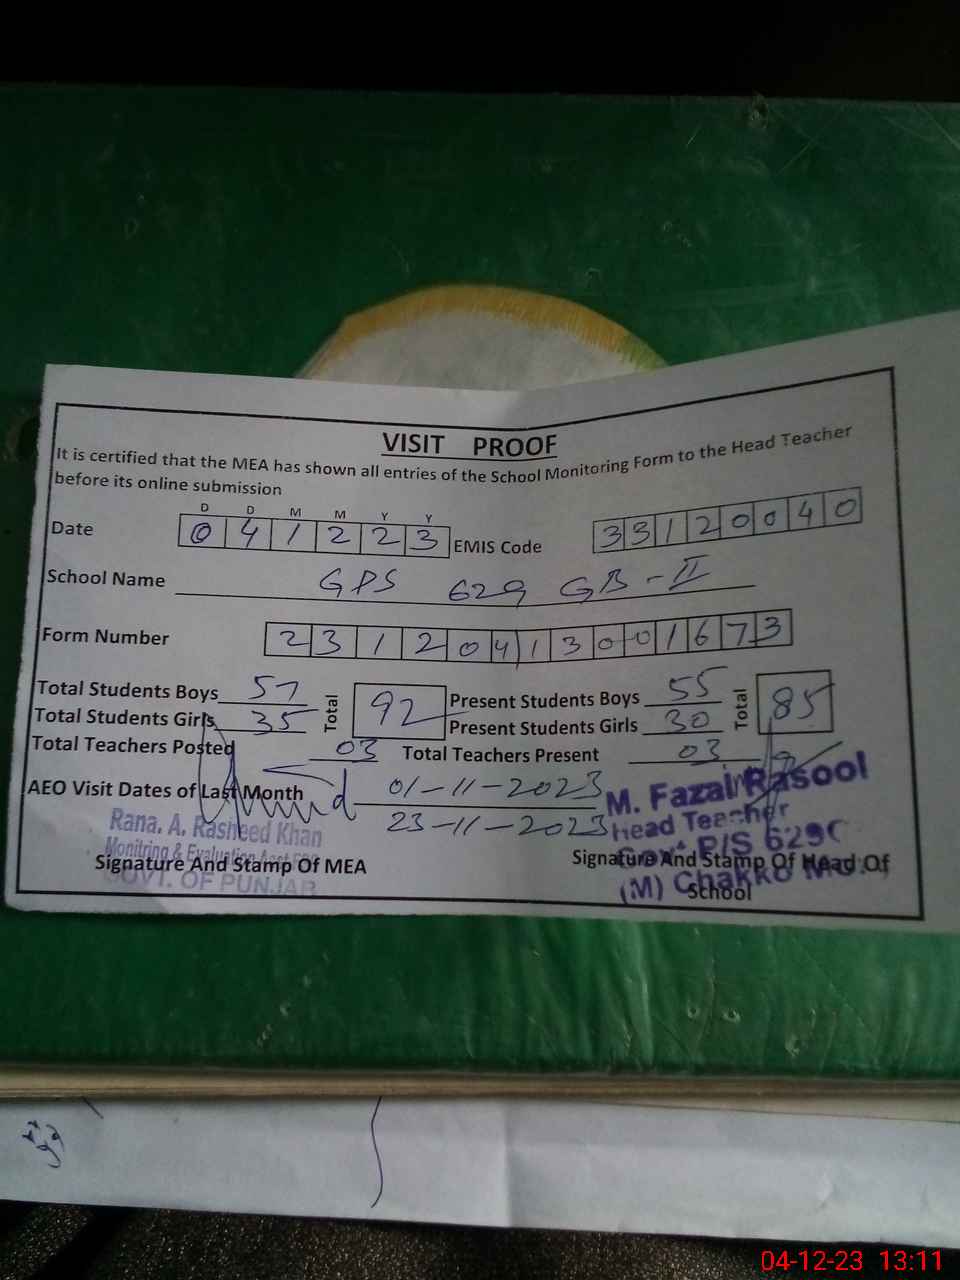 VISIT PROOF
It is certified that the MEA has shown all entries of the School Monitoring Form to the Head Teacher
before its online submission
D D M M Y Y
Date 0 4 1 2 2 3 EMIS Code 3 3 1 2 0 0 4 0
School Name GPS 629 GB-II
Form Number 2 3 1 2 0 4 1 3 0 0 1 6 7 3
Total Students Boys 57 Total 92 Present Students Boys 55 Total 85
Total Students Girls 35 Present Students Girls 30
Total Teachers Posted 03 Total Teachers Present 03
AEO Visit Dates of Last Month 01-11-2023
23-11-2023
M. Fazal Rasool
Head Teacher
Govt P/S 629G
(M) Chakko
Rana. A. Rasheed Khan
Monitring & Evaluation
GOVT. OF PUNJAB
Signature And Stamp Of MEA
Signature And Stamp Of Head Of
School
04-12-23 13:11